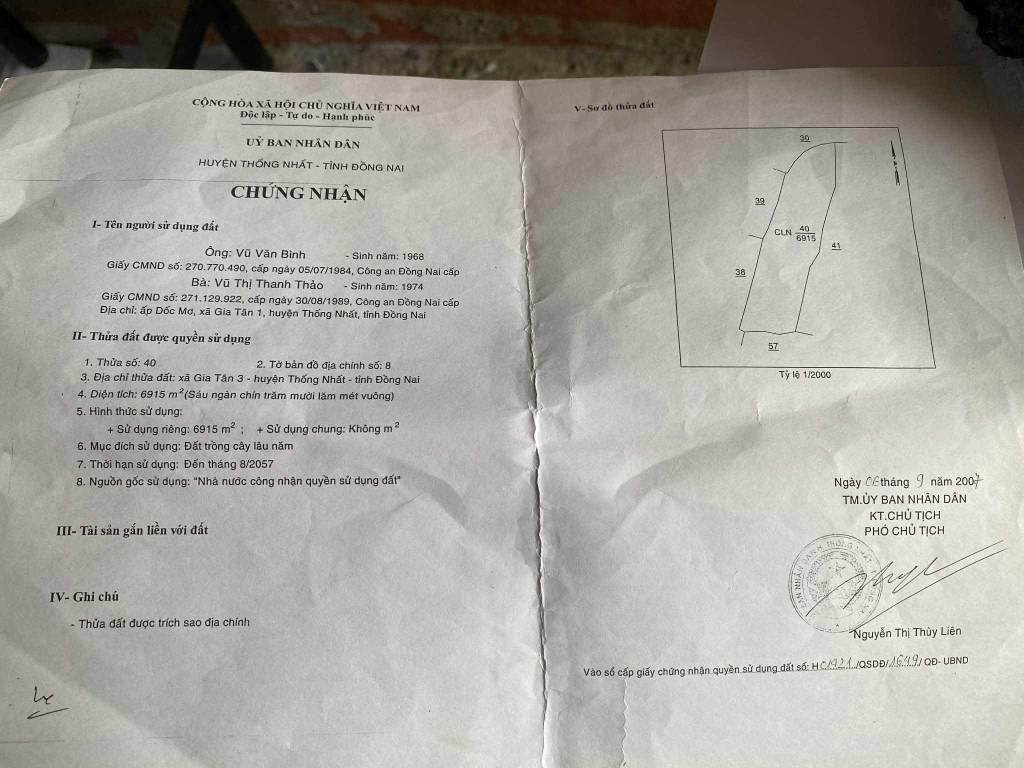 CỘNG HÒA XÃ HỘI CHỦ NGHĨA VIỆT NAM
Độc lập - Tự do - Hạnh phúc
UỶ BAN NHÂN DÂN
HUYỆN THỐNG NHẤT - TỈNH ĐỒNG NAI
CHỨNG NHẬN
I- Tên người sử dụng đất
Ông: Vũ Văn Bình - Sinh năm: 1968
Giấy CMND số: 270.770.490, cấp ngày 05/07/1984, Công an Đồng Nai cấp
Bà: Vũ Thị Thanh Thảo - Sinh năm: 1974
Giấy CMND số: 271.129.922, cấp ngày 30/08/1989, Công an Đồng Nai cấp
Địa chỉ: ấp Dốc Mơ, xã Gia Tân 1, huyện Thống Nhất, tỉnh Đồng Nai
II- Thửa đất được quyền sử dụng
1. Thửa số: 40 2. Tờ bản đồ địa chính số: 8
3. Địa chỉ thửa đất: xã Gia Tân 3 - huyện Thống Nhất - tỉnh Đồng Nai
4. Diện tích: 6915 m² (Sáu ngàn chín trăm mười lăm mét vuông)
5. Hình thức sử dụng:
+ Sử dụng riêng: 6915 m² ; + Sử dụng chung: Không m²
6. Mục đích sử dụng: Đất trồng cây lâu năm
7. Thời hạn sử dụng: Đến tháng 8/2057
8. Nguồn gốc sử dụng: "Nhà nước công nhận quyền sử dụng đất"
III- Tài sản gắn liền với đất
IV- Ghi chú
- Thửa đất được trích sao địa chính
V- Sơ đồ thửa đất
30
39
CLN 40
6915
41
38
57
Tỷ lệ 1/2000
Ngày 06 tháng 9 năm 2007
TM.ỦY BAN NHÂN DÂN
KT.CHỦ TỊCH
PHÓ CHỦ TỊCH
Nguyễn Thị Thủy Liên
Vào sổ cấp giấy chứng nhận quyền sử dụng đất số: H01921/QSDĐ/1649/QĐ- UBND